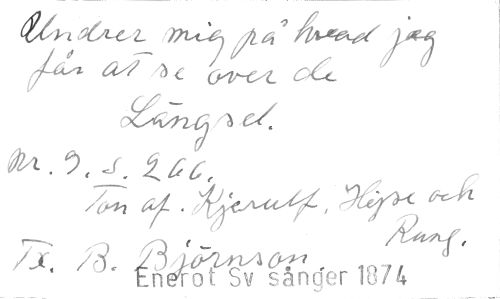 Undrer mig på hvad jag
får at se over de
Längsel.
Nr. 9. s. 266.
Ton af. Kjerulf, Heise och
Rung.
Tx. B. Björnson
Enerot Sv sånger 1874